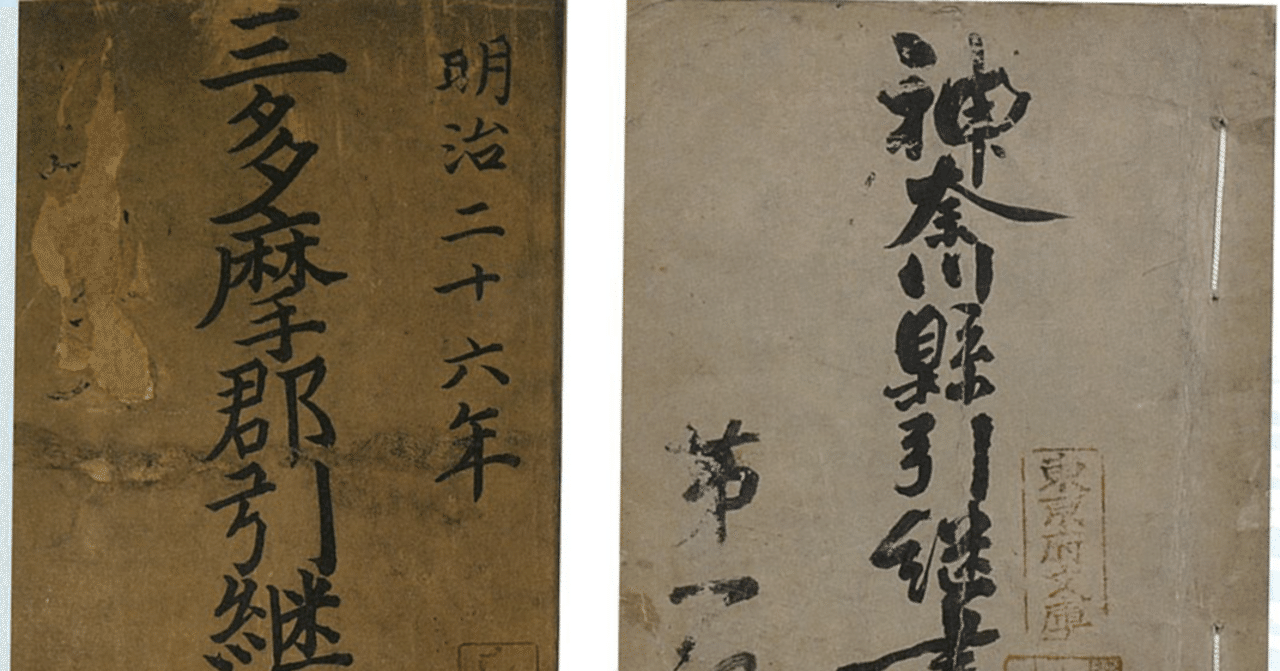 明治二十六年
三多摩郡引継
神奈川縣引継書
第一
東京府文庫